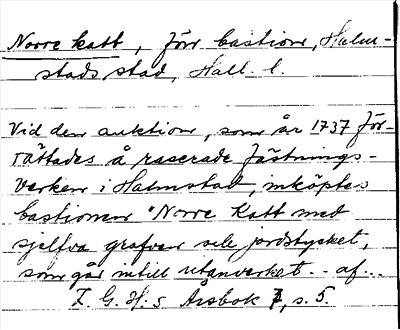 Norre Katt, förr bastion, Halm-
stads stad, Hall. l.
Vid den auktion, som år 1737 för-
rättades å raserade fästnings-
verken i Halmstad, inköptes
bastionen "Norre Katt med
sjelfva grafven och jordstycket,
som går intill utanverket... af...
F. G. H:s Årsbok 7, s. 5.